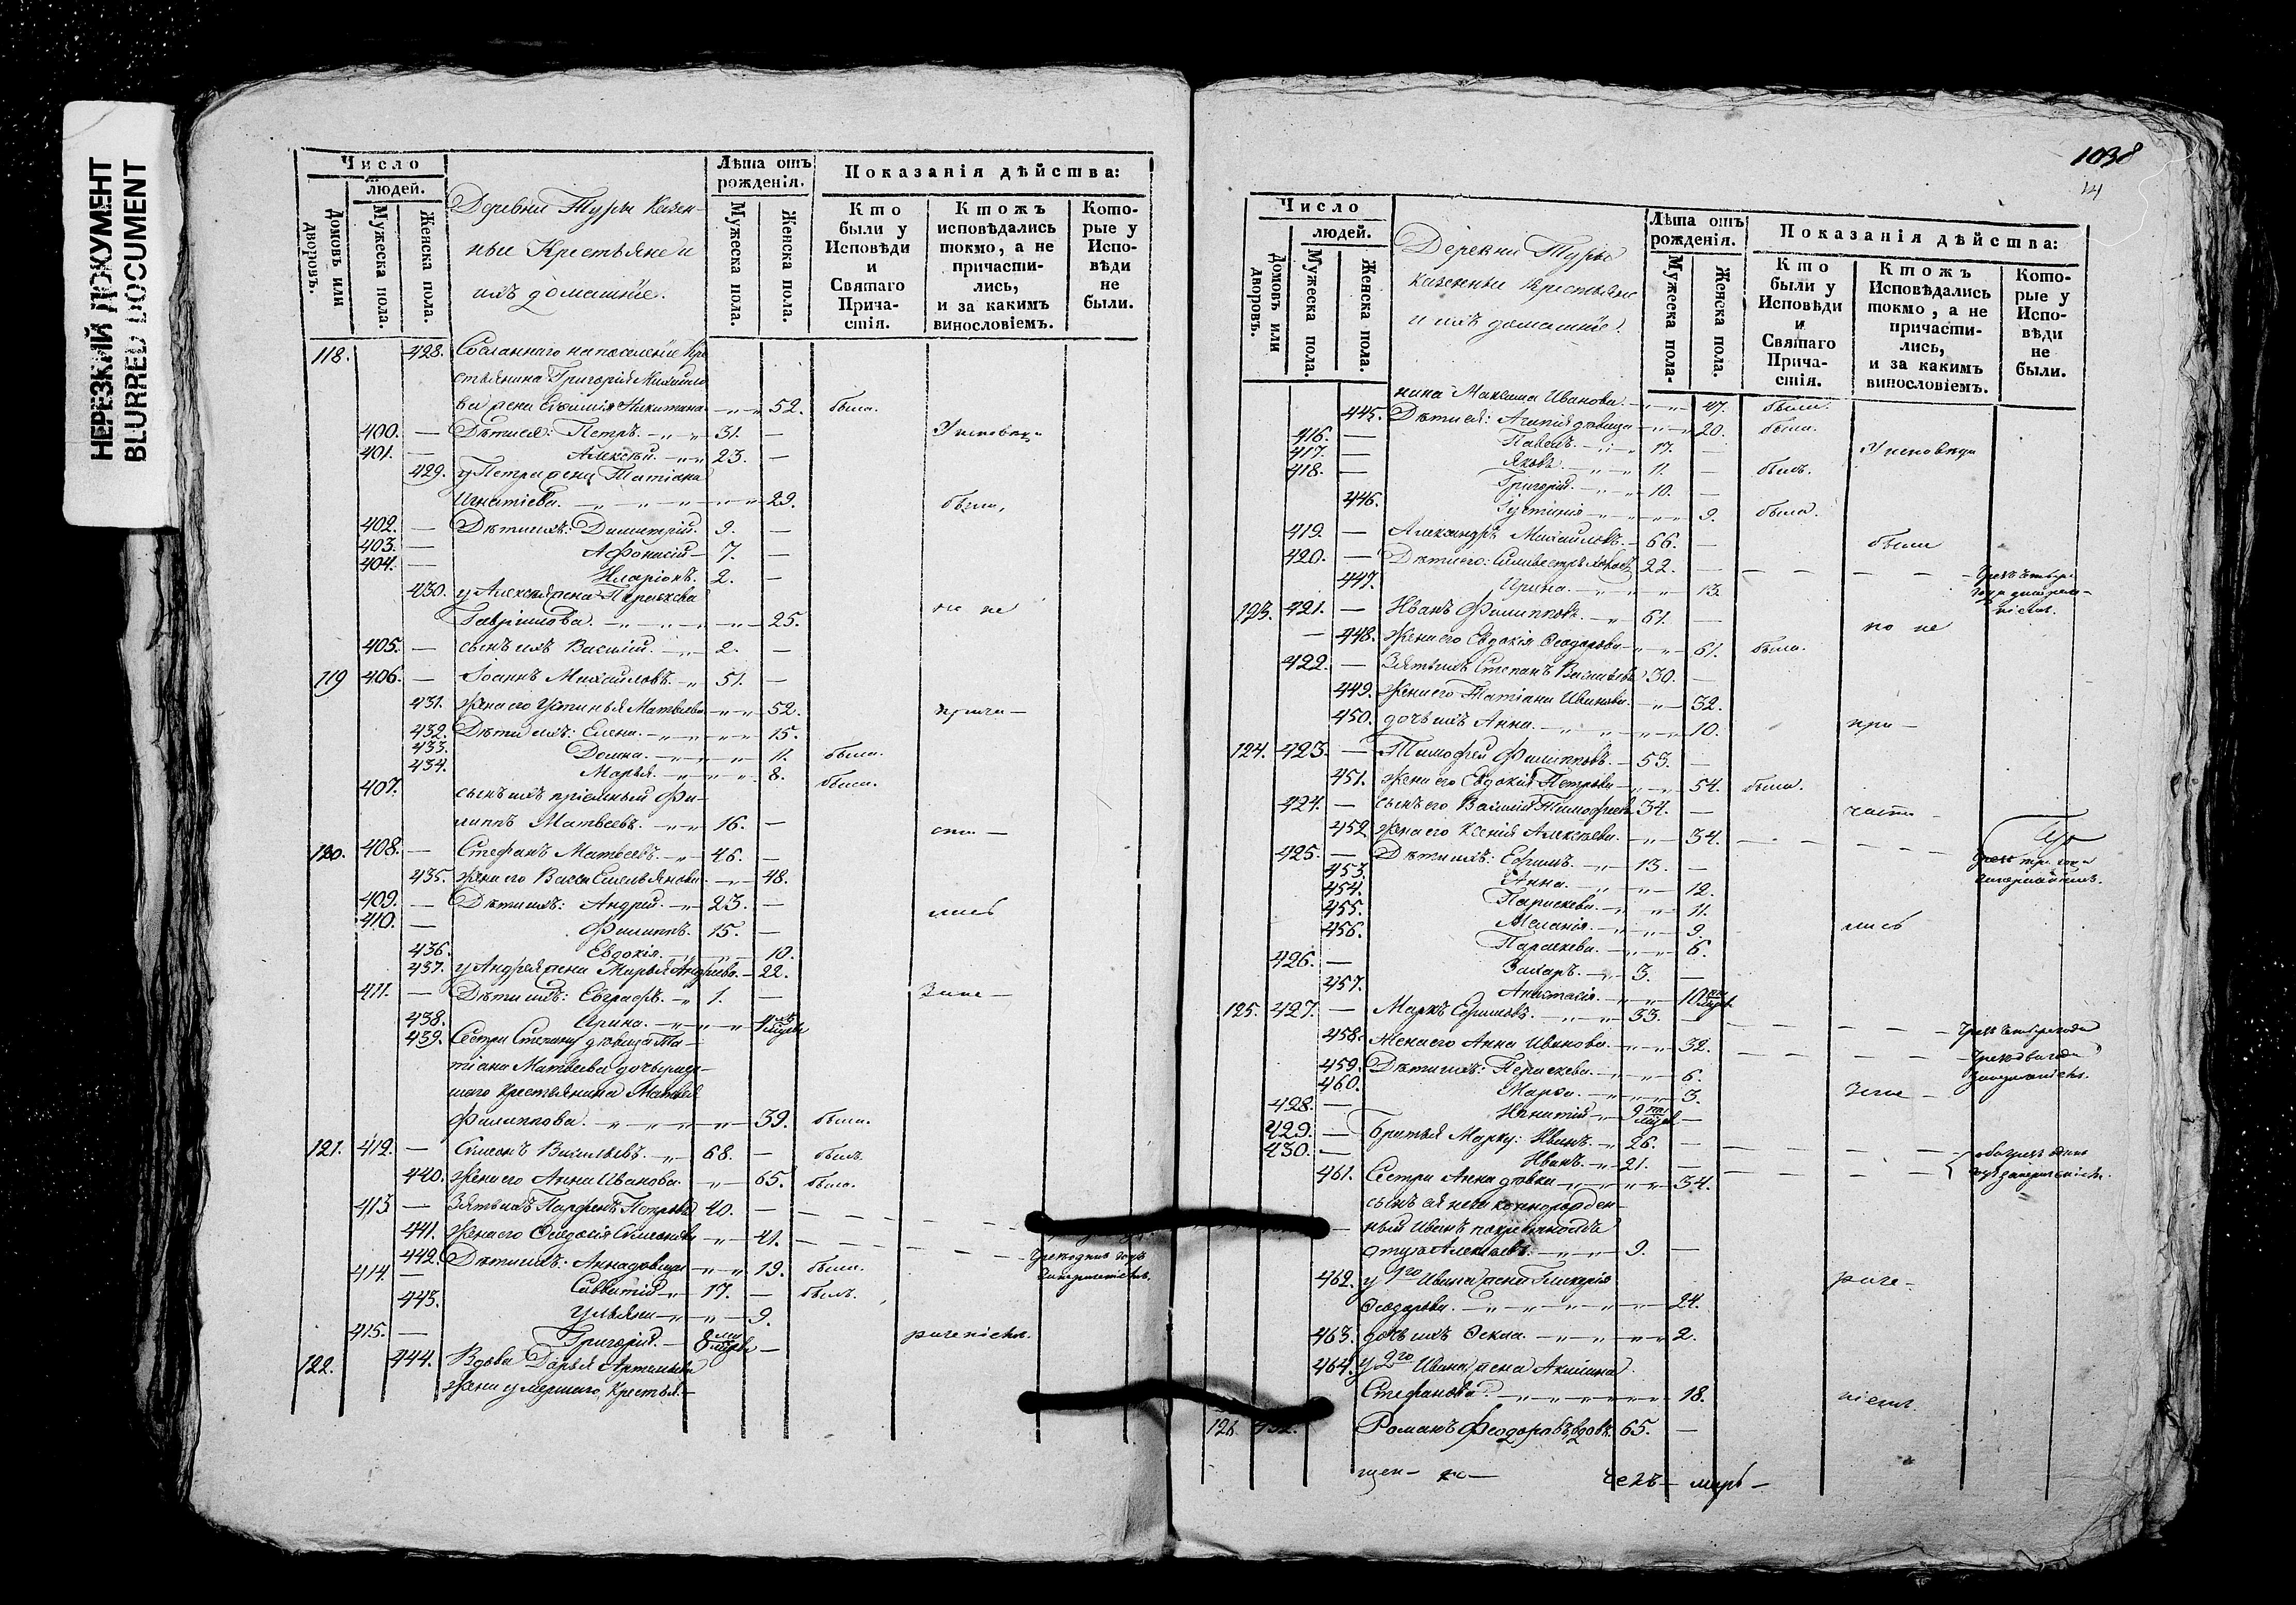 НЕРЕЗКИЙ ДОКУМЕНТ
BLURRED DOCUMENT
Число
людей.
Домовъ или дворовъ.
Мужеска пола.
Женска пола.
Деревни Туры Казен-
ные Крестьяне и
ихъ домашніе.
Лѣта отъ рожденія.
Мужеска пола.
Женска пола.
Показанія дѣйства:
Кто были у Исповѣди и Святаго Прича-стія.
Ктожъ исповѣдались токмо, а не причасти-лись, и за какимъ винословіемъ.
Кото-рые у Испо-вѣди не были.
118. 428. Сосланнаго на поселеніе кре
стьянина Григорія Михайло
ва жена Евѳимія Никитина 52. была.
400. — Дѣти ея: Петръ. 31. — У исповѣди
401. — Алексѣй. 23. —
429. у Петра жена Татіана
Игнатіева. 29. были,
402. — Дѣти ихъ: Димитрій. 9. —
403. — Афонасій 7. —
404. — Иларіонъ. 2. —
430. у Алексѣя жена Параскева
Гавріилова. 25. но не
405. — сынъ ихъ Василій. 2. —
119 406. — Іоаннъ Михайловъ. 51. —
431. Жена его Устинья Матвеева 52. прича —
432. Дѣти ихъ: Елена. 15.
433. Домна. 11. была.
434. Марья. 8. была.
407. сынъ ихъ пріемный Фи-
липпъ Матвеевъ. 16. — сти —
120. 408. — Стефанъ Матвеевъ. 46. —
435. Жена его Васса Емельянова 48.
409. — Дѣти ихъ: Андрей. 23. — лись
410. — Филиппъ. 15. —
436. Евдокія. 10.
437. у Андрея жена Марья Андреева. 22.
411. — Дѣти ихъ: Евграфъ. 1. — Запе —
438. Ирина. 4 мѣ
439. Сестра Степану дѣвица Та-
тіана Матвеева дочь умер-
шаго крестьянина Матвея
Филиппова. 39. была.
121. 412. — Симеонъ Васильевъ. 68. — былъ.
440. Жена его Анна Иванова. 65. была.
413 — Зять ихъ Парфенъ Петровъ 40. —
441. Жена его Ѳеодосія Симеонова 41. —
442. Дѣти ихъ: Анна дѣвица 19. была.
414. — Савватій 17. — былъ.
443. Ульяна 9.
415. — Григорій. 8 — рательств.
122. 444. Вдова Дарья Артемьева
жена умершаго Крестья-
1038
14
Число
людей.
Домовъ или дворовъ.
Мужеска пола.
Женска пола.
Деревни Туры
казенные крестьяне
и ихъ домашніе.
Лѣта отъ рожденія.
Мужеска пола.
Женска пола.
Показанія дѣйства:
Кто были у Исповѣди и Святаго Прича-стія.
Ктожъ Исповѣдались токмо, а не причасти-лись, и за какимъ винословіемъ.
Кото-рые у Испо-вѣди не были.
нина Максима Иванова. 47. была.
445. Дѣти ея: Агапія дѣвица 20. была.
416. — Павелъ. 17. — У исповѣди
417. — Яковъ. 11. — былъ.
418. — Григорій. 10. —
446. Іустинія 9. была.
419. — Александръ Михайловъ. 66. — были
420. — Дѣти его: Сильвестръ 22. —
447. Ирина. 13.
123. 421. — Иванъ Филипповъ. 61. — но не
448. Жена его Евдокія Ѳеодорова 61. была.
422. — Зять ихъ Степанъ Васильевъ 30. —
449. Жена его Татіана Иванова. 32.
450. дочь ихъ Анна. 10. при —
124. 423. — Тимофей Филипповъ. 53. —
451. Жена его Евдокія Петрова 54. была.
424. — сынъ его Василій Тимофеевъ 34. — части
452 Жена его Ксенія Алексѣева. 34.
425. — Дѣти ихъ: Ефимъ. 13. —
453. Анна. 12.
454. Параскева. 11.
455. Меланія. 9. лись
456. Параскева. 6.
426. — Захаръ. 3. —
457. Анастасія. 10
125. 427. — Маркъ Ефимовъ. 33. —
458. Жена его Анна Иванова. 32.
459. Дѣти ихъ: Параскева. 6.
460. Марѳа. 3. Запе —
428. — Игнатій 9 —
429. — Братья Марку: Иванъ. 26. —
430. — Иванъ. 21. —
461. Сестра Анна дѣвка 34.
сынъ ея незаконнорожден-
ный Иванъ по крестномъ
отцу Алексѣевъ. 9. —
462. у 1го Ивана жена Гликерія рате-
Ѳеодорова. 24.
463. дочь ихъ Ѳекла. 2.
464. у 2го Ивана жена Акилина
Стефанова. 18.
126. 432. Романъ Феодоровъ, вдовъ. 65. —